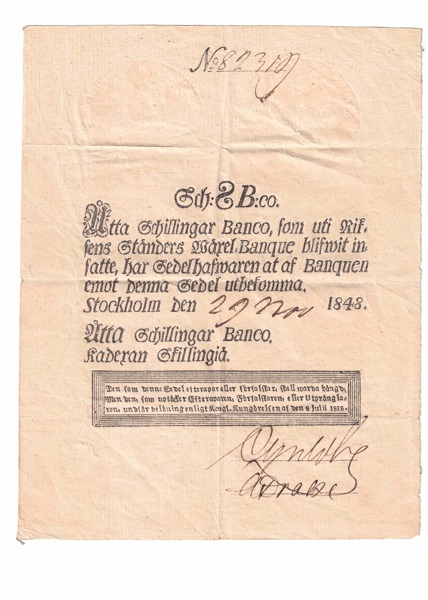 No. 8231
Sch: 8 B:co.
Åtta Schillingar Banco, som uti Rik-
sens Ständers Wäxel-Banque blifwit in-
satte, har Sedelhafwaren at af Banquen
emot denna Sedel utbekomma.
Stockholm den 29 Nov 1848.
Åtta Schillingar Banco.
Kadexan Skillingiä.
Den som denne Sedel efterapar eller förfalskar, skall warda hängd;
Men den, som uptäcker Efteraparen, Förfalskaren, eller Utprångla-
ren, undfår belöning enligt Kongl. Kungörelsen af den 8 Julii 1818.